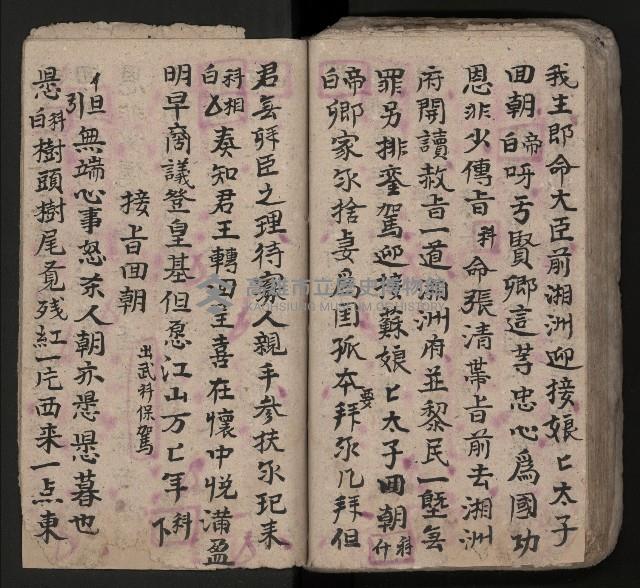 我主即命大臣前湘洲迎接娘匕太子
回朝帝白呀于賢卿這等忠心爲國功
恩非少傳旨科命張清帶旨前去湘洲
府開讀赦旨一道湘洲府並黎民一塱無
罪另排銮駕迎接蘇娘匕太子回朝科介
帝白卿家尔捨妻爲国孤本要拜尔几拜但
君無拜臣之理待寡人親手參扶尔玘来
科相白又奏知君王轉回主喜在懷中悦滿盈
明早啇議登皇基但愿江山万匕年科下
接旨回朝 出武科保駕
引但無端心事怒奈人朝亦思思暮也
思科白樹頭樹尾覔残紅一片西来一点東
高雄市立歷史博物館
KAOHSIUNG MUSEUM OF HISTORY